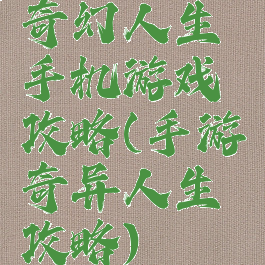 奇幻人生
手机游戏
攻略(手游
奇异人生
攻略)